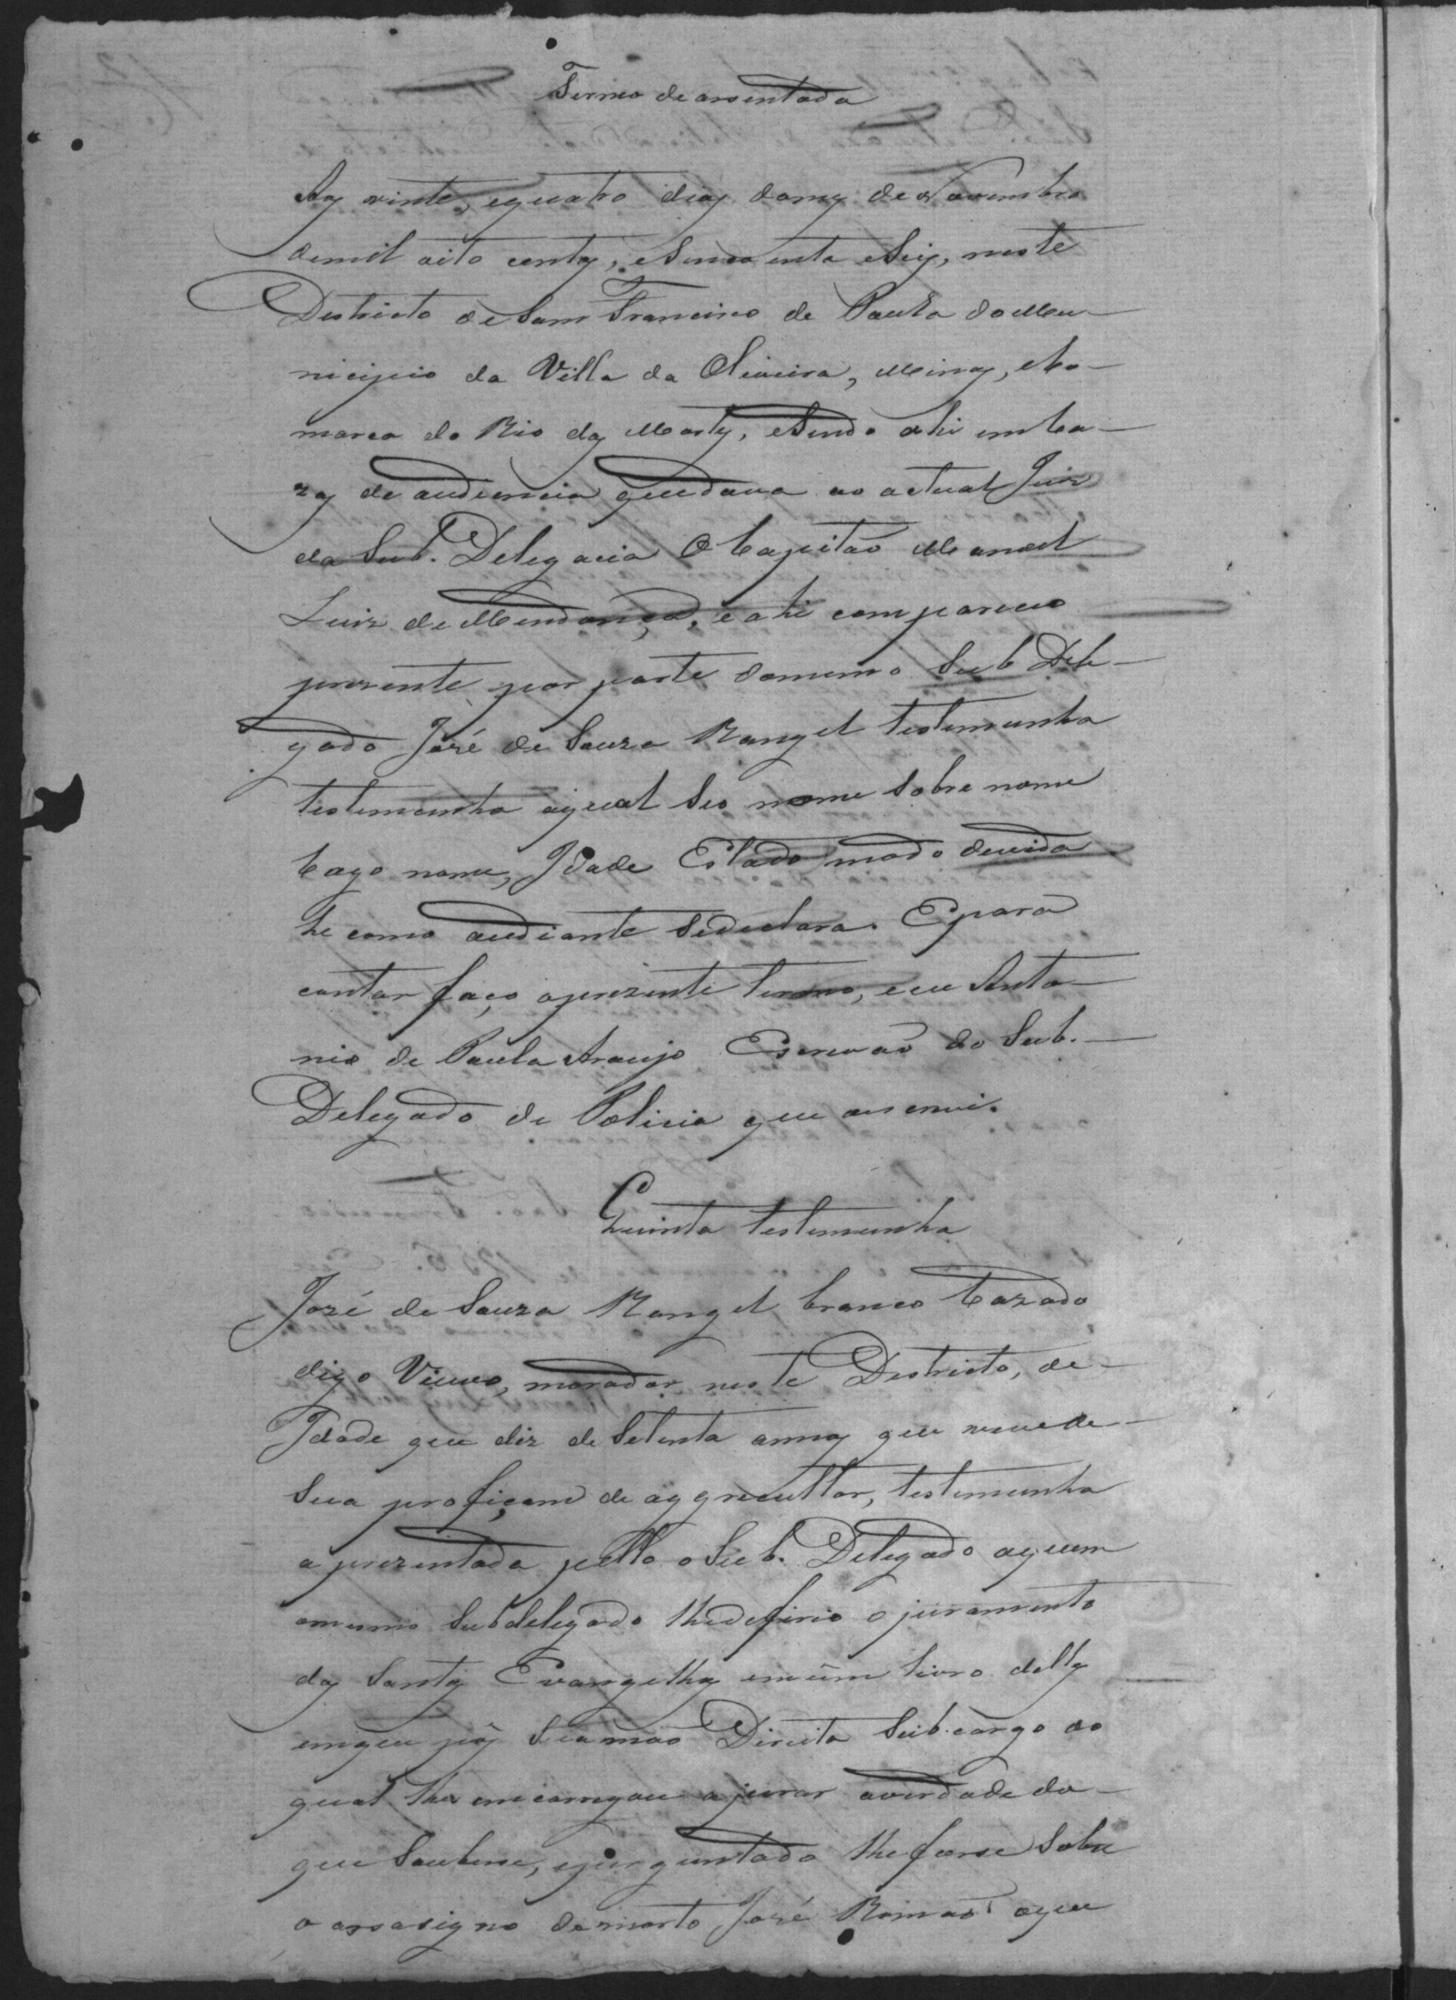 Termo de assentada
Aos vinte, equatro dias domes de Novembro
demil oito centos, esincoenta eSeis, neste
Destricto de Sam Francisco de Paula doMu-
nicipio da Villa da Oliveira, Minas, eCo-
marca do Rio das Mortes, eSendo ahi emCa-
zas de audiencia quedava ao actual Juiz
da Sub. Delegacia O Capitão Manoel
Luiz de Mendonça, e ahi compareceo
prezente por parte domesmo Sub Dele-
gado José de Souza Rangel testemunha
testemunha aqual Seo nome Sobre nome
Cago nome, Idade Estado modo devida
he como audiante Sedeclara. Epara
contar faço oprezente termo, eeu Anto-
nio de Paula Araujo Escrivão do Sub.-
Delegado de Policia que asescrevi.
Quinta testemunha
José de Souza Rangel branco Cazado
digo Viuvo, morador neste Destricto, de-
Idade que diz de Setenta annos que vive de-
Sua profiçam de aggrecultor, testemunha
aprezentada pello oSub. Delegado aquem
omesmo Subdelegado lhedefirio o juramento
dos Santos Evangelhos emúm livro delles
emque pôs Suamão Direita Subcargo do
qual lhe emcarregou ajurar averdade do-
que Soubese, eperguntado lhefoise Sobre
o assasigno demorto José Romão oque